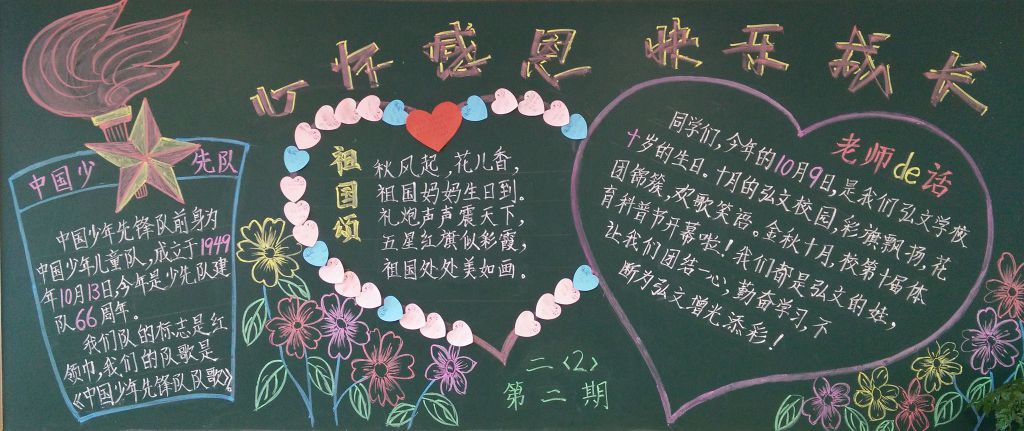 心怀感恩 快乐成长
中国少 先队
中国少年先锋队前身为
中国少年儿童队,成立于1949
年10月13日,今年是少先队建
队66周年。
我们队的标志是红
领巾,我们的队歌是
《中国少年先锋队队歌》
祖国颂
秋风起,花儿香,
祖国妈妈生日到.
礼炮声声震天下,
五星红旗似彩霞,
祖国处处美如画.
二<2>
第二期
老师de话
同学们,今年的10月9日,是我们弘文学校
十岁的生日。十月的弘文校园,彩旗飘扬,花
团锦簇,欢歌笑语。金秋十月,校第十届体
育科普节开幕啦!我们都是弘文的娃,
让我们团结一心,勤奋学习,不
断为弘文增光添彩!